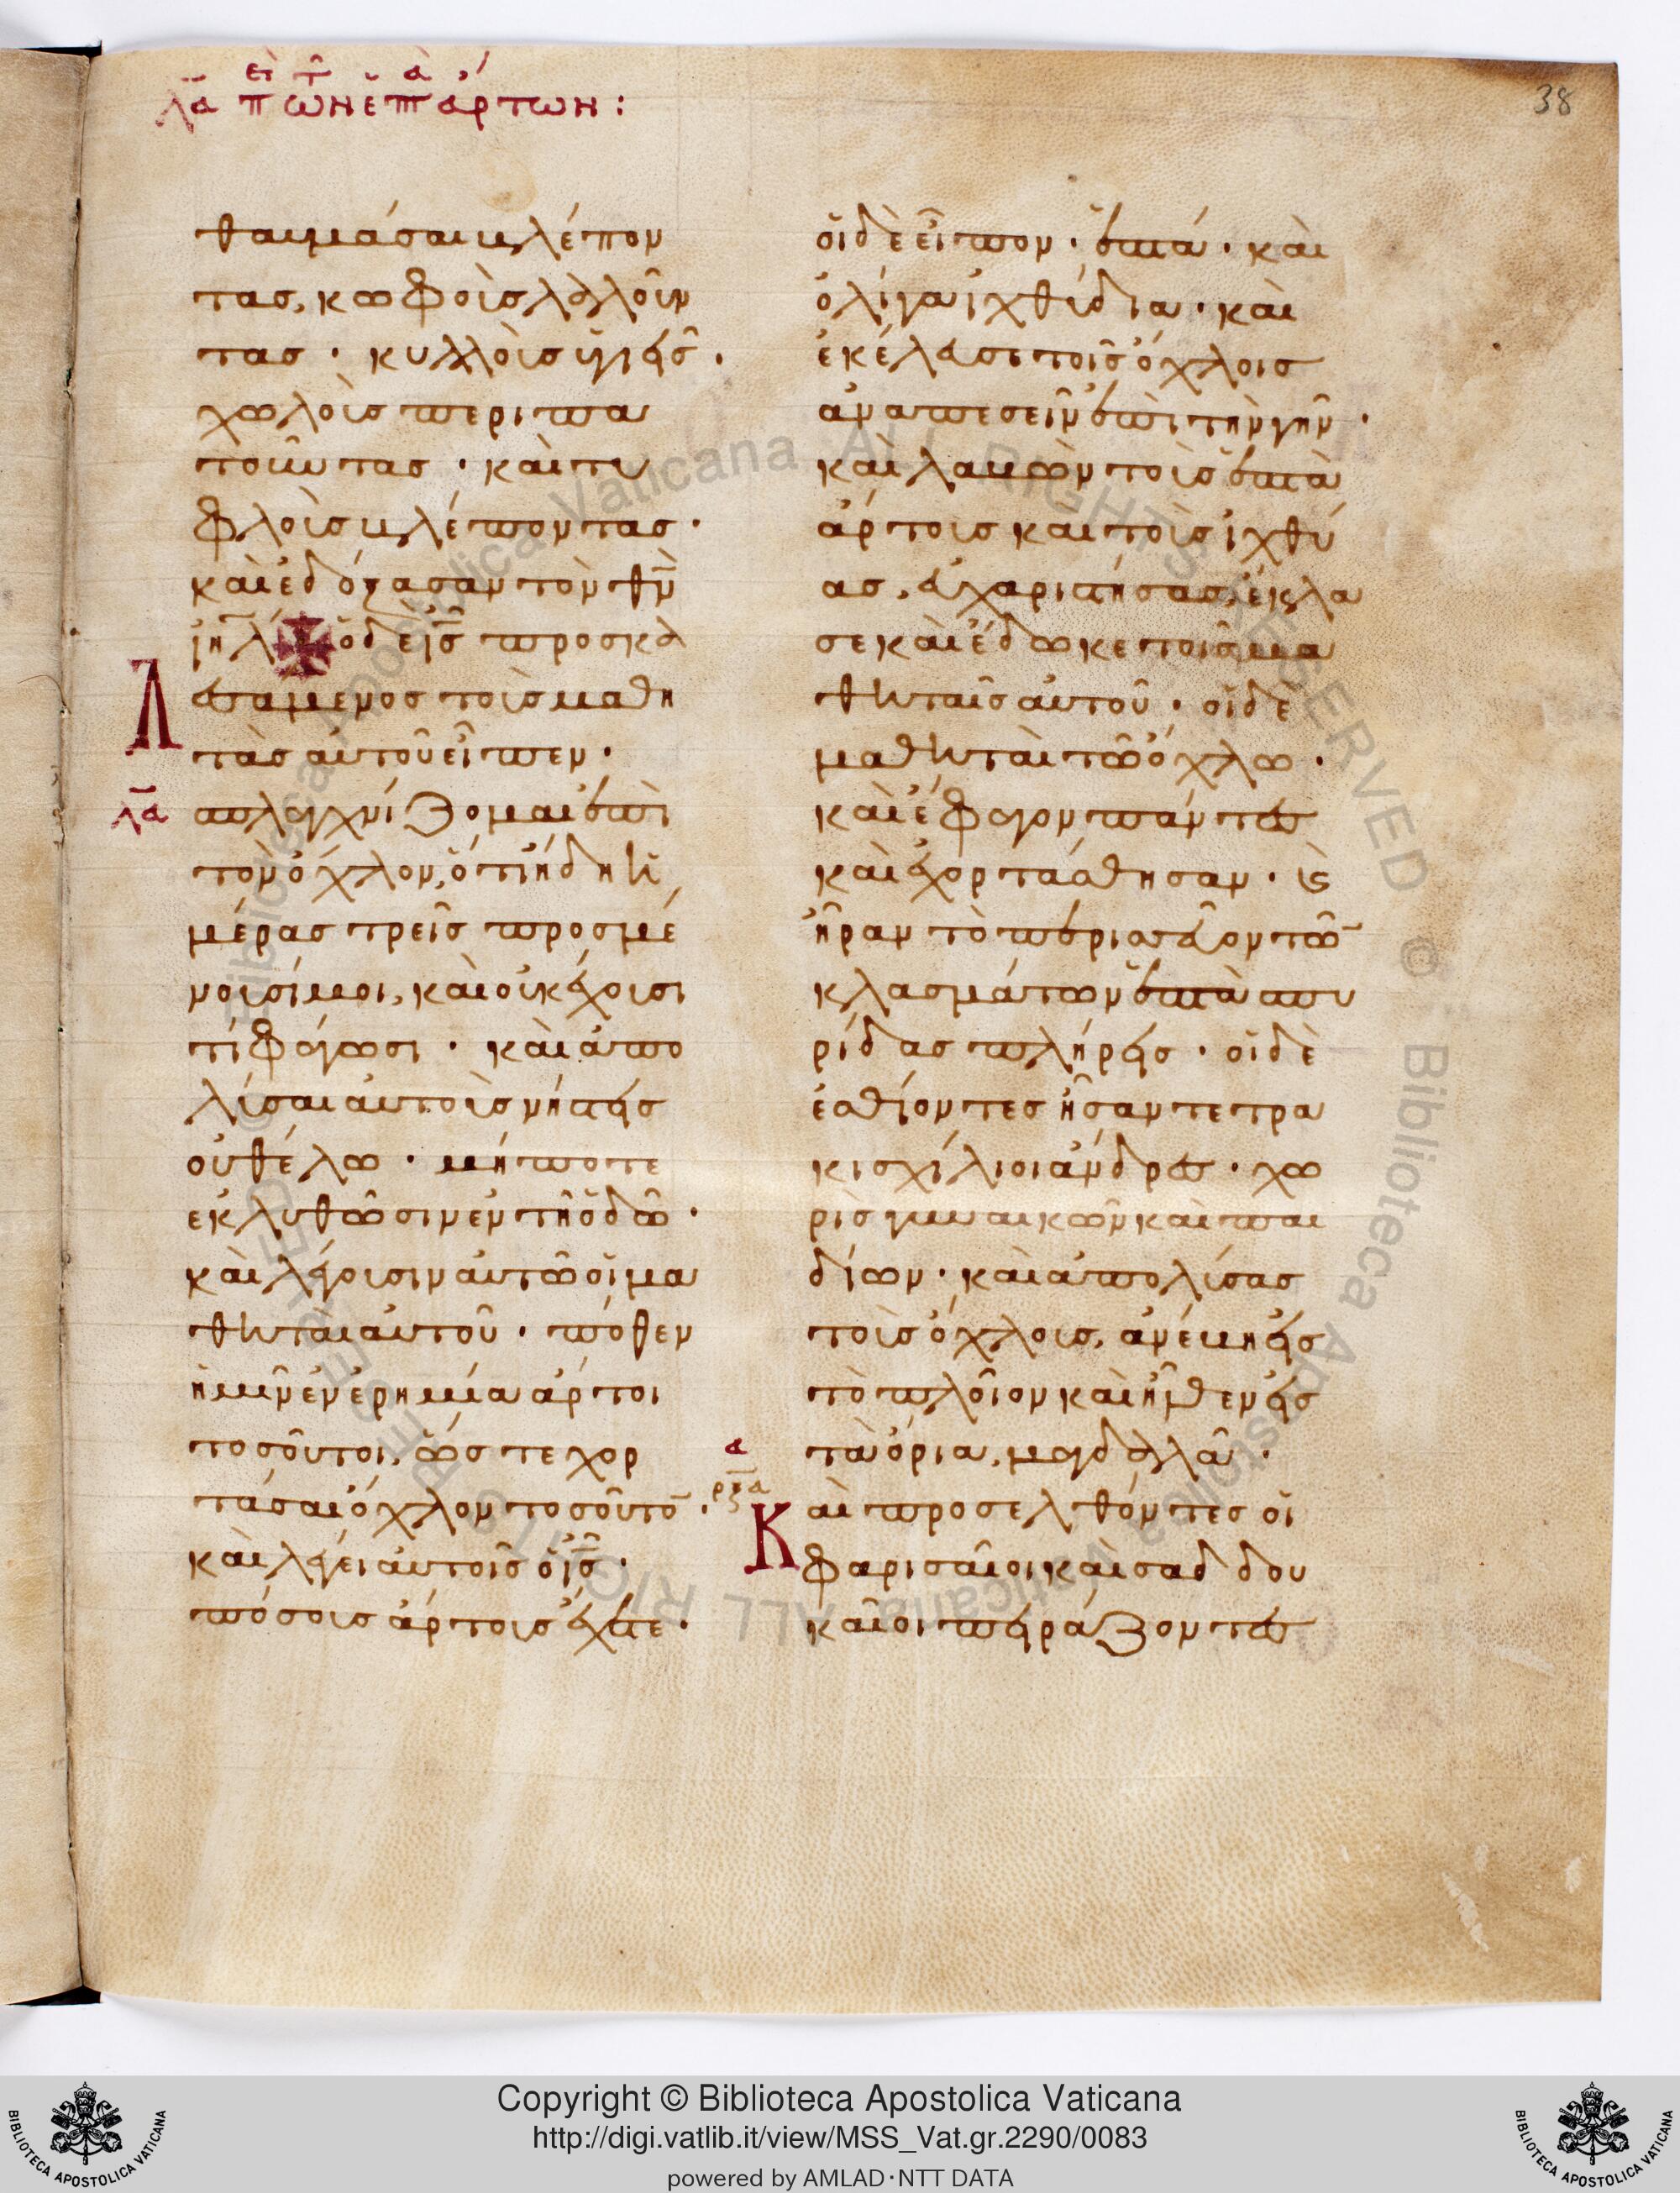 λα π ων επτ αρτων:
38
θαυμάσαι βλέπον
τας, κωφοὺς λαλοῦν
τας · κυλλοὺς ὑγιεῖς ·
χωλοὺς περιπα
τοῦντας · καὶ τυ
φλοὺς βλέποντας ·
καὶ ἐδόξασαν τὸν θν̄
ιηλ ὁ δὲ ις̄ προσκα
Λ
λεσάμενος τοὺς μαθη
τὰς αὐτοῦ εἶπεν ·
λα
σπλαγχνίζομαι ἐπὶ
τὸν ὄχλον, ὅτι ἤδη ἡ
μέρας τρεῖς προσμέ
νουσί μοι, καὶ οὐκ ἔχουσι
τί φάγωσι · καὶ ἀπο
λύσαι αὐτοὺς νήστεις
οὐ θέλω · μήποτε
ἐκλυθῶσιν ἐν τῆ ὁδῶ ·
καὶ λέγουσιν αὐτῶ οἱ μα
θηταὶ αὐτοῦ · πόθεν
ἡμῖν ἐν ἐρημία ἄρτοι
τοσοῦτοι, ὥστε χορ
τάσαι ὄχλον τοσοῦτο̄ ·
καὶ λέγει αὐτοῖς ὁ ις̄ ·
πόσους ἄρτους ἔχετε ·
οἱ δὲ εἶπον · ἑπτά · καὶ
ὀλίγα ἰχθύδια · καὶ
ἐκέλευσε τοῖς ὄχλοις
ἀναπεσεῖν ἐπὶ τὴν γῆν ·
καὶ λαβὼν τοὺς ἑπτὰ
ἄρτους καὶ τοὺς ἰχθύ
ας, εὐχαριστήσας, ἔκλα
σε καὶ ἔδωκε τοῖς μα
θηταῖς αὐτοῦ · οἱ δὲ
μαθηταὶ τῶ ὄχλω ·
καὶ ἔφαγον πάντες
καὶ ἐχορτάσθησαν · κ̀
ἦραν τὸ περισσεῦον τῶ̄
κλασμάτων ἑπτὰ σπυ
ρίδας πλήρεις · οἱ δὲ
ἐσθίοντες ἦσαν τετρα
κισχίλιοι ἄνδρες · χω
ρὶς γυναικῶν καὶ παι
δίων · καὶ ἀπολύσας
τοὺς ὄχλους, ἀνέβη εἰς
τὸ πλοῖον καὶ ἦλθεν εἰς
τὰ ὅρια, μαγδαλλᾶ ·
ρξα
Καὶ προσελθόντες οἱ
φαρισαῖοι καὶ σαδδου
καῖοι πειράζοντες
Copyright © Biblioteca Apostolica Vaticana
http://digi.vatlib.it/view/MSS_Vat.gr.2290/0083
powered by AMLAD·NTT DATA
BIBLIOTECA APOSTOLICA VATICANA
BIBLIOTECA APOSTOLICA VATICANA